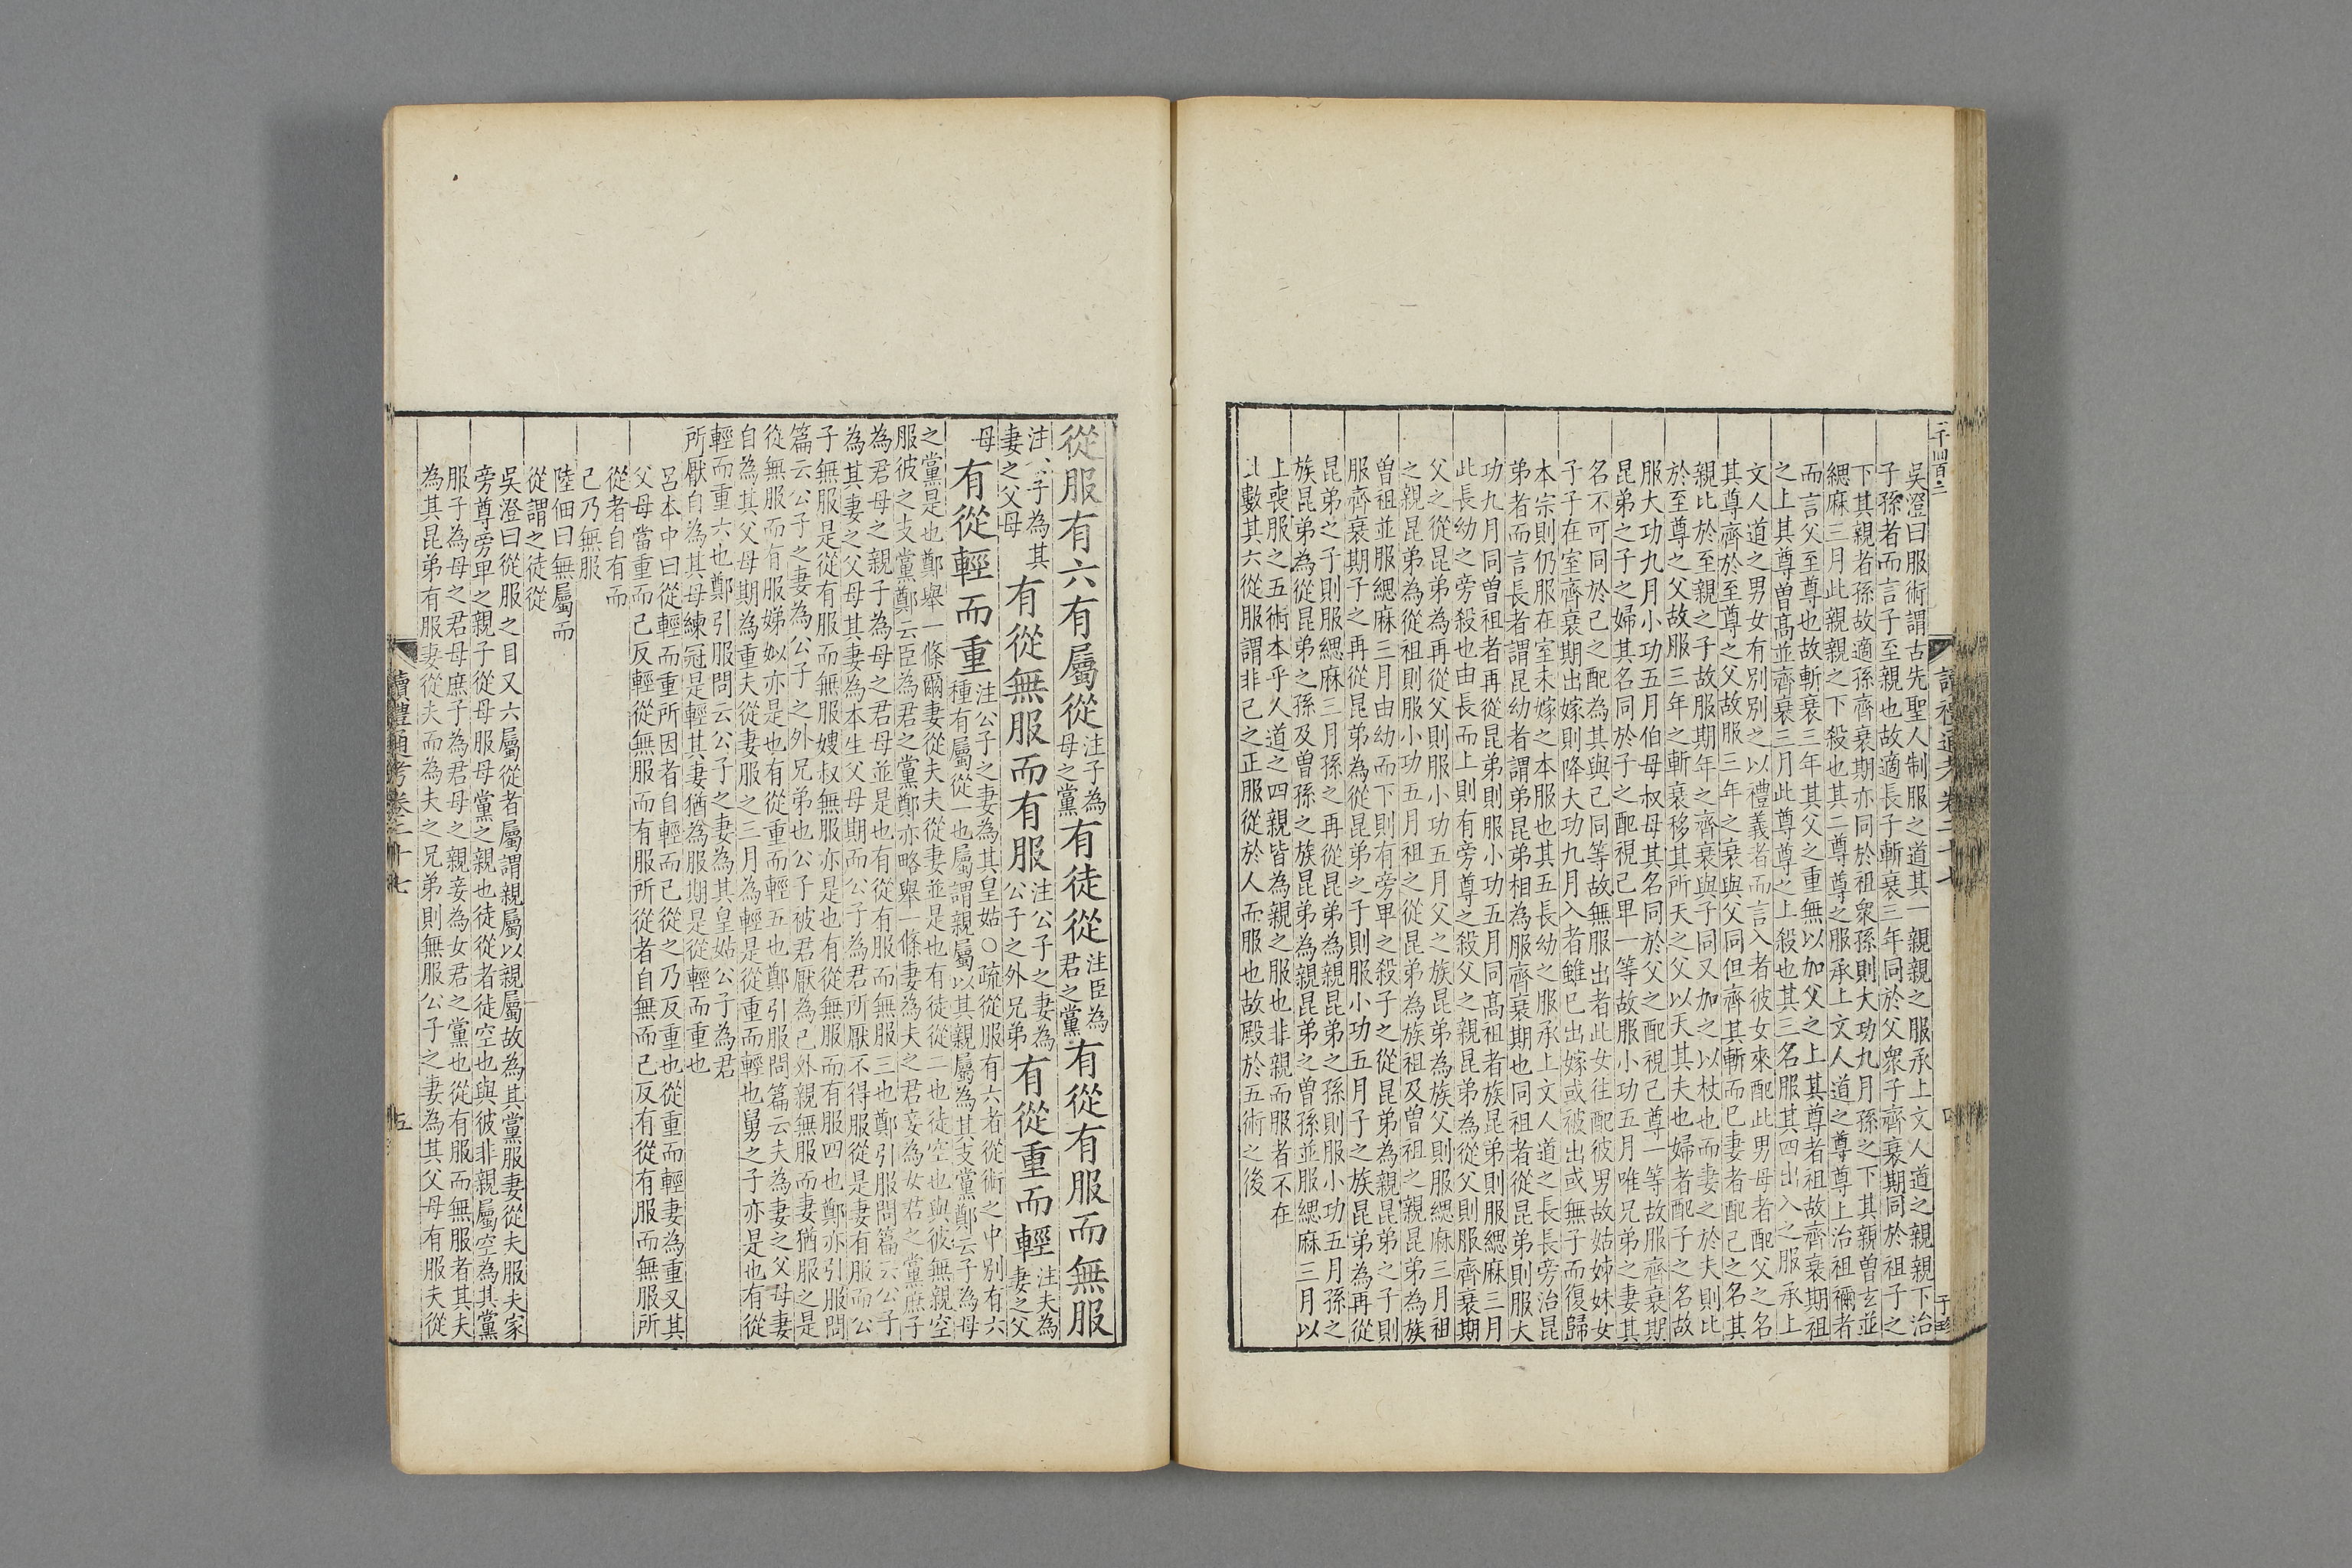 二千四百二
讀禮通考卷二十七
四
子珍
吳澄曰服術謂古先聖人制服之道其一親親之服承上文人道之親親下治
子孫者而言子至親也故適長子斬衰三年同於父衆子齊衰期同於祖子之
下其親者孫故適孫齊衰期亦同於祖衆孫則大功九月孫之下其親曾玄並
緦麻三月此親親之下殺也其二尊尊之服承上文人道之尊尊上治祖禰者
而言父至尊也故斬衰三年其父之重無以加父之上其尊者祖故齊衰期祖
之上其尊曾髙並齊衰三月此尊尊之上殺也其三名服其四出入之服承上
文人道之男女有別別之以禮義者而言入者彼女來配此男母者配父之名
其尊齊於至尊之父故服三年之衰與父同但齊其斬而已妻者配己之名其
親比於至親之子故服期年之齊衰與子同又加之以杖也而妻之於夫則比
於至尊之父故服三年之斬衰移其所天之父以天其夫也婦者配子之名故
服大功九月小功五月伯母叔母其名同於父之配視己尊一等故服齊衰期
昆弟之子之婦其名同於子之配視己卑一等故服小功五月唯兄弟之妻其
名不可同於己之配為其與己同等故無服出者此女往配彼男故姑姊妹女
子子在室齊衰期出嫁則降大功九月入者雖已出嫁或被出或無子而復歸
本宗則仍服在室未嫁之本服也其五長幼之服承上文人道之長長旁治昆
弟者而言長者謂昆幼者謂弟昆弟相為服齊衰期也同祖者從昆弟則服大
功九月同曾祖者再從昆弟則服小功五月同髙祖者族昆弟則服緦麻三月
此長幼之旁殺也由長而上則有旁尊之殺父之親昆弟為從父則服齊衰期
父之從昆弟為再從父則服小功五月父之族昆弟為族父則服緦麻三月祖
之親昆弟為從祖則服小功五月祖之從昆弟為族祖及曾祖之親昆弟為族
曾祖並服緦麻三月由幼而下則有旁卑之殺子之從昆弟為親昆弟之子則
服齊衰期子之再從昆弟為從昆弟之子則服小功五月子之族昆弟為再從
昆弟之子則服緦麻三月孫之再從昆弟為親昆弟之孫則服小功五月孫之
族昆弟為從昆弟之孫及曾孫之族昆弟為親昆弟之曾孫並服緦麻三月以
上喪服之五術本乎人道之四親皆為親之服也非親而服者不在
此數其六從服謂非己之正服從於人而服也故殿於五術之後
從服有六有屬從注子為母之黨有徒從注臣為君之黨有從有服而無服
注公子為其妻之父母有從無服而有服注公子之妻為公子之外兄弟有從重而輕注夫為妻之父
母有從輕而重注公子之妻為其皇姑○疏從服有六者從術之中別有六
種有屬從一也屬謂親屬以其親屬為其支黨鄭云子為母
之黨是也鄭舉一條爾妻從夫夫從妻並是也有徒從二也徒空也與彼無親空
服彼之支黨鄭云臣為君之黨鄭亦略舉一條妻為夫之君妾為女君之黨庶子
為君母之親子為母之君母並是也有從有服而無服三也鄭引服問篇云公子
為其妻之父母其妻為本生父母期而公子為君所厭不得服從是妻有服而公
子無服是從有服而無服嫂叔無服亦是也有從無服而有服四也鄭亦引服問
篇云公子之妻為公子之外兄弟也公子被君厭為己外親無服而妻猶服之是
從無服而有服娣姒亦是也有從重而輕五也鄭引服問篇云夫為妻之父母妻
自為其父母期為重夫從妻服之三月為輕是從重而輕也舅之子亦是也有從
輕而重六也鄭引服問云公子之妻為其皇姑公子為君
所厭自為其母練冠是輕其妻猶為服期是從輕而重也
呂本中曰從輕而重所因者自輕而己從之乃反重也從重而輕妻為重又其
父母當重而己反輕從無服而有服所從者自無而己反有從有服而無服所
從者自有而
己乃無服
陸佃曰無屬而
從謂之徒從
吳澄曰從服之目又六屬從者屬謂親屬以親屬故為其黨服妻從夫服夫家
旁尊旁卑之親子從母服母黨之親也徒從者徒空也與彼非親屬空為其黨
服子為母之君母庶子為君母之親妾為女君之黨也從有服而無服者其夫
為其昆弟有服妻從夫而為夫之兄弟則無服公子之妻為其父母有服夫從
讀禮通考卷二十七
五